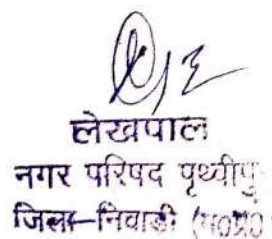 लेखपाल
नगर परिषद पृथ्वीपु
जिला-निवाडी (म०प्र०